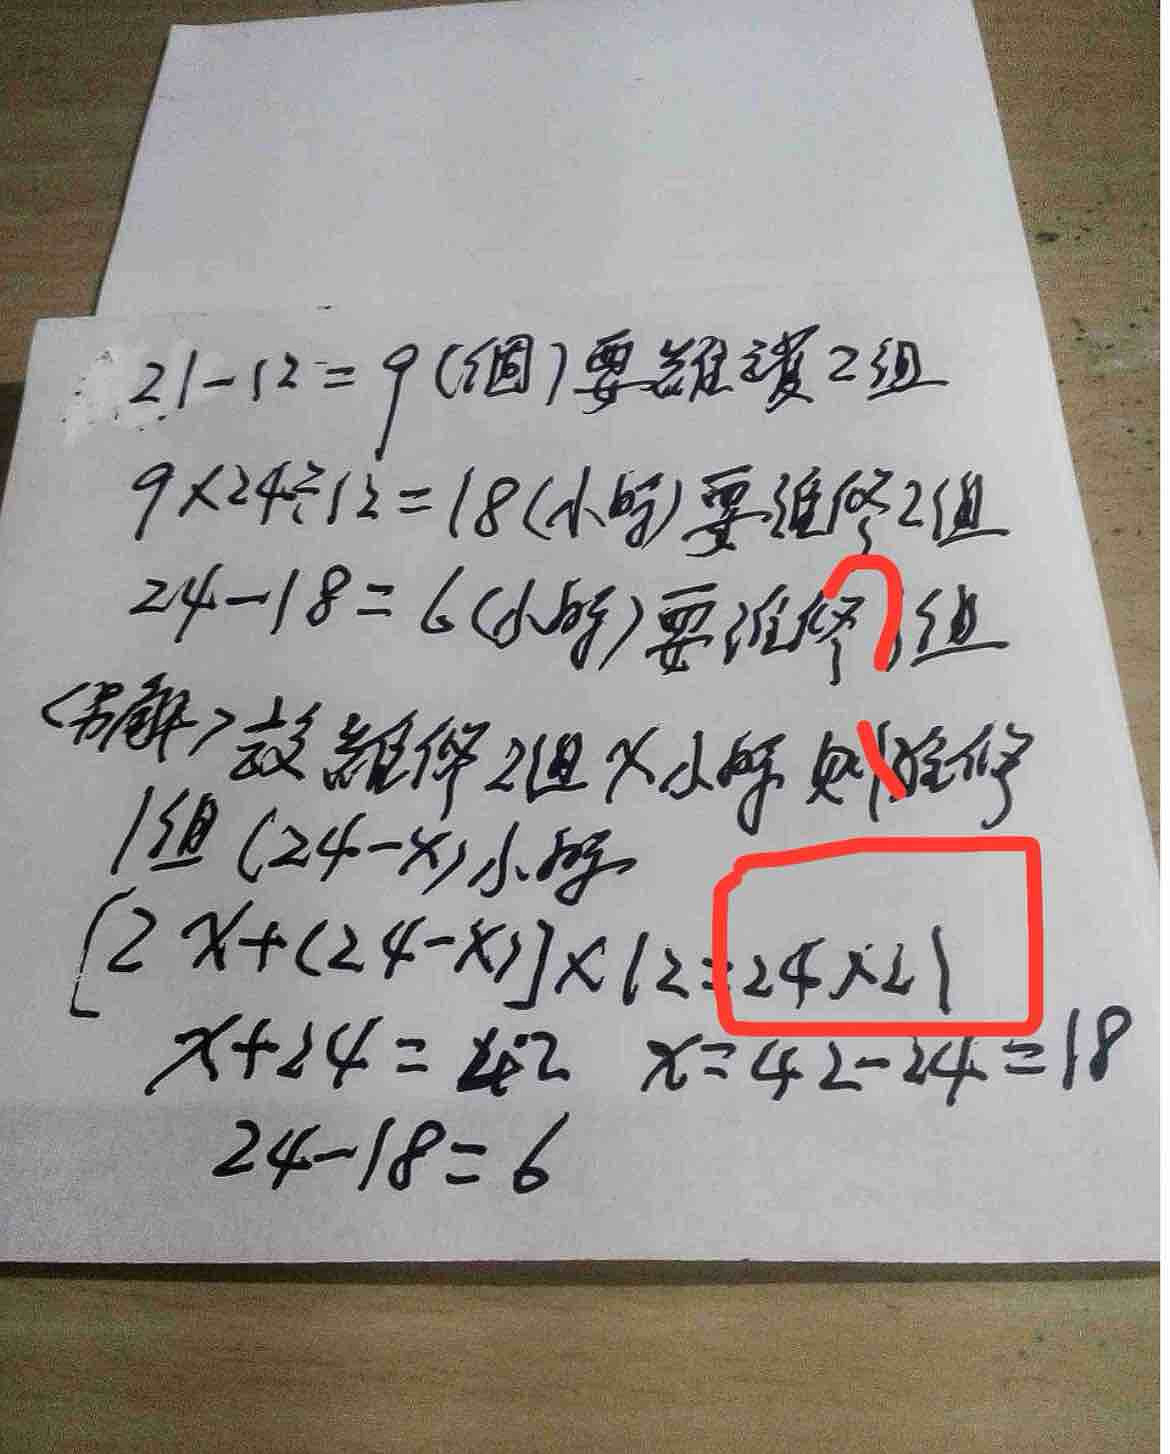 21-12=9(個)要維護2組
9×24÷12=18(小時)要維修2組
24-18=6(小時)要維修1組
<另解>設維修2組x小時則維修
1組(24-x)小時
[2x+(24-x)]×12=24×21
x+24=42 x=42-24=18
24-18=6